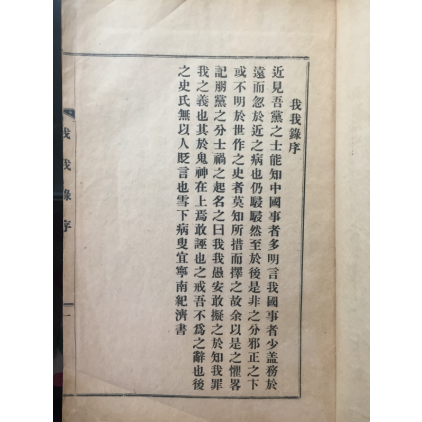 我我錄序
近見吾黨之士能知中國事者多明言我國事者少盖務於
遠而忽於近之病也仍駸駸然至於後是非之分邪正之下
或不明於世作之史者莫知所措而擇之故余以是之懼畧
記朋黨之分士禍之起名之曰我我愚安敢擬之於知我罪
我之義也其於鬼神在上焉敢誣也之戒吾不爲之辭也後
之史氏無以人貶言也雪下病叟宜寧南紀濟書
我我錄序
一